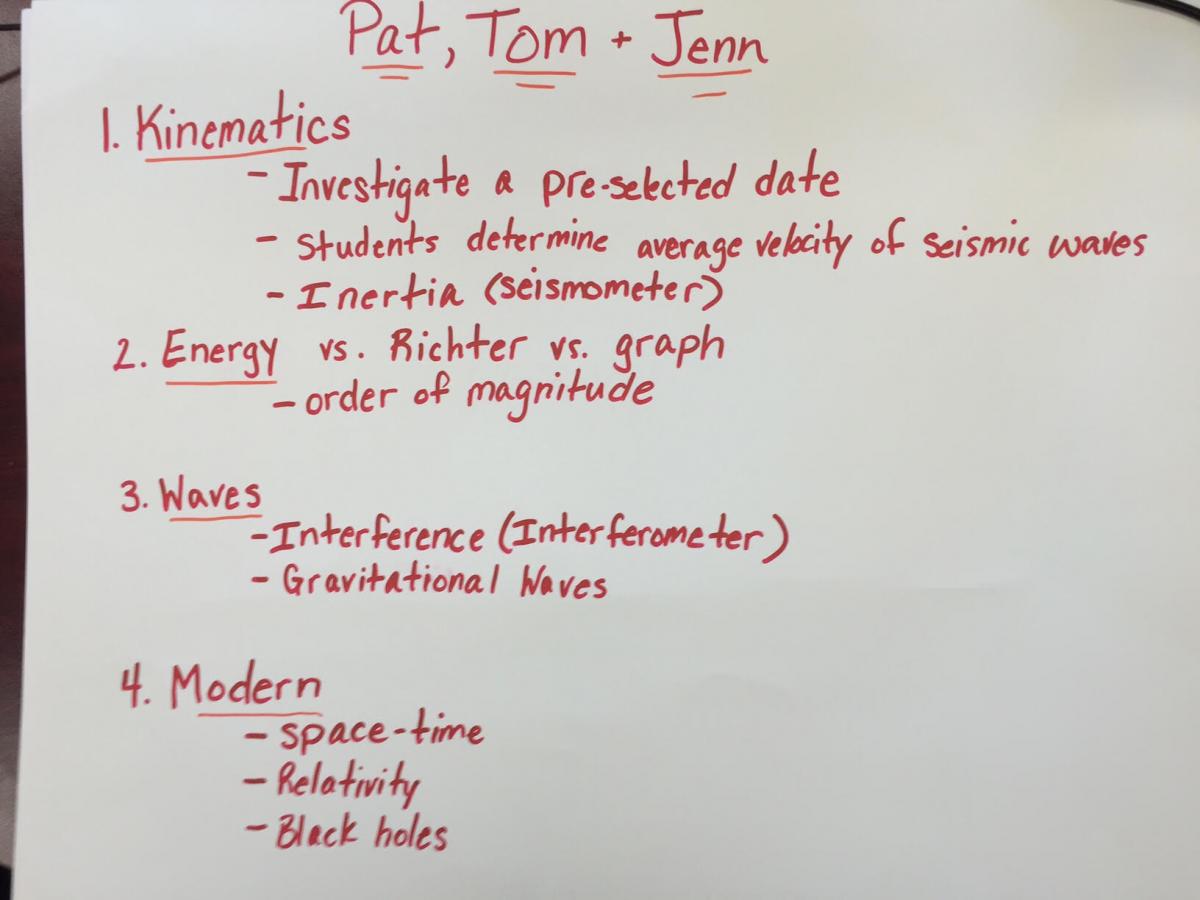 Pat, Tom + Jenn
1. Kinematics
- Investigate a pre-selected date
- Students determine average velocity of seismic waves
- Inertia (seismometer)
2. Energy vs. Richter vs. graph
- order of magnitude
3. Waves
- Interference (Interferometer)
- Gravitational Waves
4. Modern
- space-time
- Relativity
- Black holes